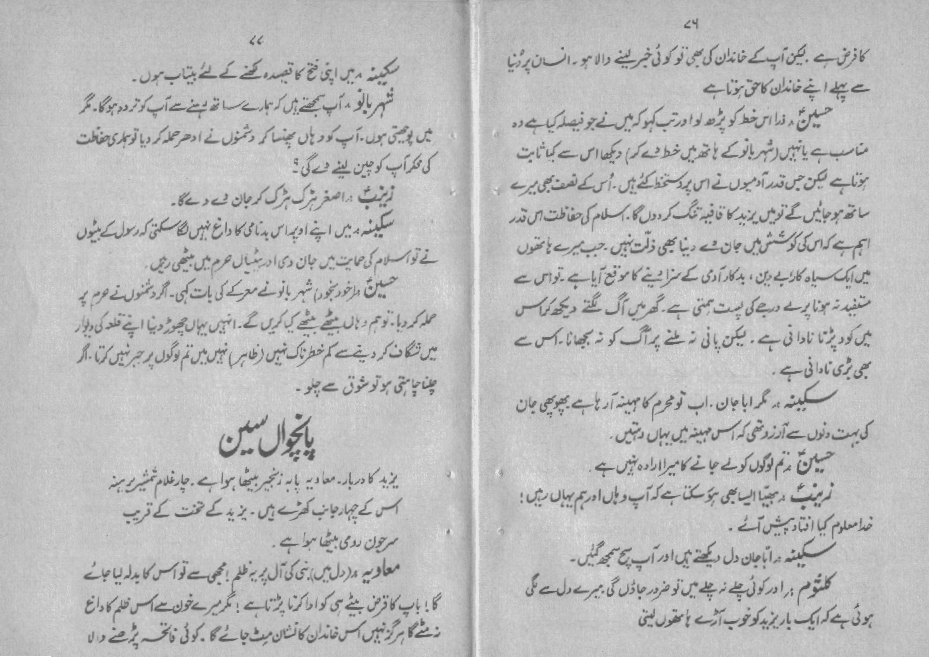 ۷۶
کا فرض ہے۔ لیکن آپ کے خاندان کی بھی تو کوئی خبر لینے والا ہو۔ انسان پر دُنیا
سے پہلے اپنے خاندان کا حق ہوتا ہے
حسینؑ :۔ ذرا اس خط کو پڑھ لو اور تب کہو کہ میں نے جو فیصلہ کیا ہے وہ
مناسب ہے یا نہیں (شہر بانو کے ہاتھ میں خط دے کر) دیکھا اس سے کیا ثابت
ہوتا ہے لیکن جس قدر آدمیوں نے اس پر دستخط کئے ہیں۔ اُس کے نصف بھی میرے
ساتھ ہو جائیں گے تو میں یزید کا قافیہ تنگ کر دوں گا۔ اسلام کی حفاظت اس قدر
اہم ہے کہ اس کی کوشش میں جان دے دینا بھی ذلّت نہیں۔ جب میرے ہاتھوں
میں ایک سیاہ کار بے دین، بدکار آدمی کے سزا دینے کا موقع آیا ہے۔ تو اس سے
مستفید نہ ہونا پرلے درجے کی پست ہمتی ہے۔ گھر میں آگ لگتے دیکھ کر اس
میں کود پڑنا نادانی ہے۔ لیکن پانی نہ ملنے پر آگ کو نہ بجھانا۔ اس سے
بھی بڑی نادانی ہے۔
سکینہ :۔ مگر ابا جان۔ اب تو محرم کا مہینہ آ رہا ہے پھوپھی جان
کی بہت دنوں سے آرزو تھی کہ اس مہینہ میں یہاں رہتیں۔
حسینؑ :۔ تم لوگوں کو لے جانے کا میرا ارادہ نہیں ہے۔
زینبؑ :۔ بھیّا ایسا بھی ہو سکتا ہے کہ آپ وہاں اور ہم یہاں رہیں؛
خدا معلوم کیا افتاد پیش آئے۔
سکینہ :۔ ابّا جان دل دیکھتے ہیں اور آپ سچ سمجھ گئیں۔
کلثوم :۔ اور کوئی چلے نہ چلے میں تو ضرور جاؤں گی میرے دل سے لگی
ہوئی ہے کہ ایک بار یزید کو خوب آڑے ہاتھوں لیتی
۷۷
سکینہ :۔ میں اپنی فتح کا قصیدہ کہنے کے لئے بیتاب ہوں۔
شہر بانو :۔ آپ سمجھتے ہیں کہ ہمارے ساتھ رہنے سے آپ کو تردد ہوگا۔ مگر
میں پوچھتی ہوں۔ آپ کو وہاں پھنسا کر دشمنوں نے ادھر حملہ کر دیا تو ہماری حفاظت
کی فکر آپ کو چین لینے دے گی؟
زینبؑ :۔ اصغر ہڑک ہڑک کر جان دے دے گا۔
سکینہ :۔ میں اپنے اوپر اس بدنامی کا داغ نہیں لگا سکتی کہ رسول کے بیٹوں
نے تو اسلام کی حمایت میں جان دی اور بیٹیاں حرم میں بیٹھی رہیں۔
حسینؑ :۔ (خود بخود) شہر بانو نے معرکے کی بات کہی۔ اگر دشمنوں نے حرم پر
حملہ کر دیا۔ تو ہم وہاں بیٹھے بیٹھے کیا کریں گے۔ انہیں یہاں چھوڑ دینا اپنے قلعہ کی دیوار
میں شگاف کر دینے سے کم خطرناک نہیں (ظاہر) نہیں میں تم لوگوں پر جبر نہیں کرتا۔ اگر
چلنا چاہتی ہو تو شوق سے چلو۔
پانچواں سین
یزید کا دربار۔ معاویہ پا بہ زنجیر بیٹھا ہوا ہے۔ چار غلام شمشیر برہنہ
اس کے چہار جانب کھڑے ہیں۔ یزید کے تخت کے قریب
سرجون رومی بیٹھا ہوا ہے۔
معاویہ :۔ (دل میں) نبی کی آل پر یہ ظلم! مجھی سے تو اس کا بدلہ لیا جائے
گا! باپ کا قرض بیٹے ہی کو ادا کرنا پڑتا ہے! مگر میرے خون سے اس ظلم کا داغ
نہ مٹے گا ہرگز نہیں اس خاندان کا نشان مٹ جائے گا۔ کوئی فاتحہ پڑھنے والا